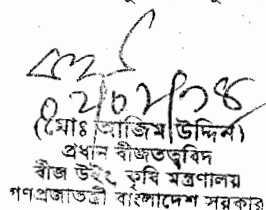 ২/০২/১৪
(মোঃ আজিম উদ্দিন)
প্রধান বীজতত্ত্ববিদ
বীজ উইং, কৃষি মন্ত্রণালয়
গণপ্রজাতন্ত্রী বাংলাদেশ সরকার